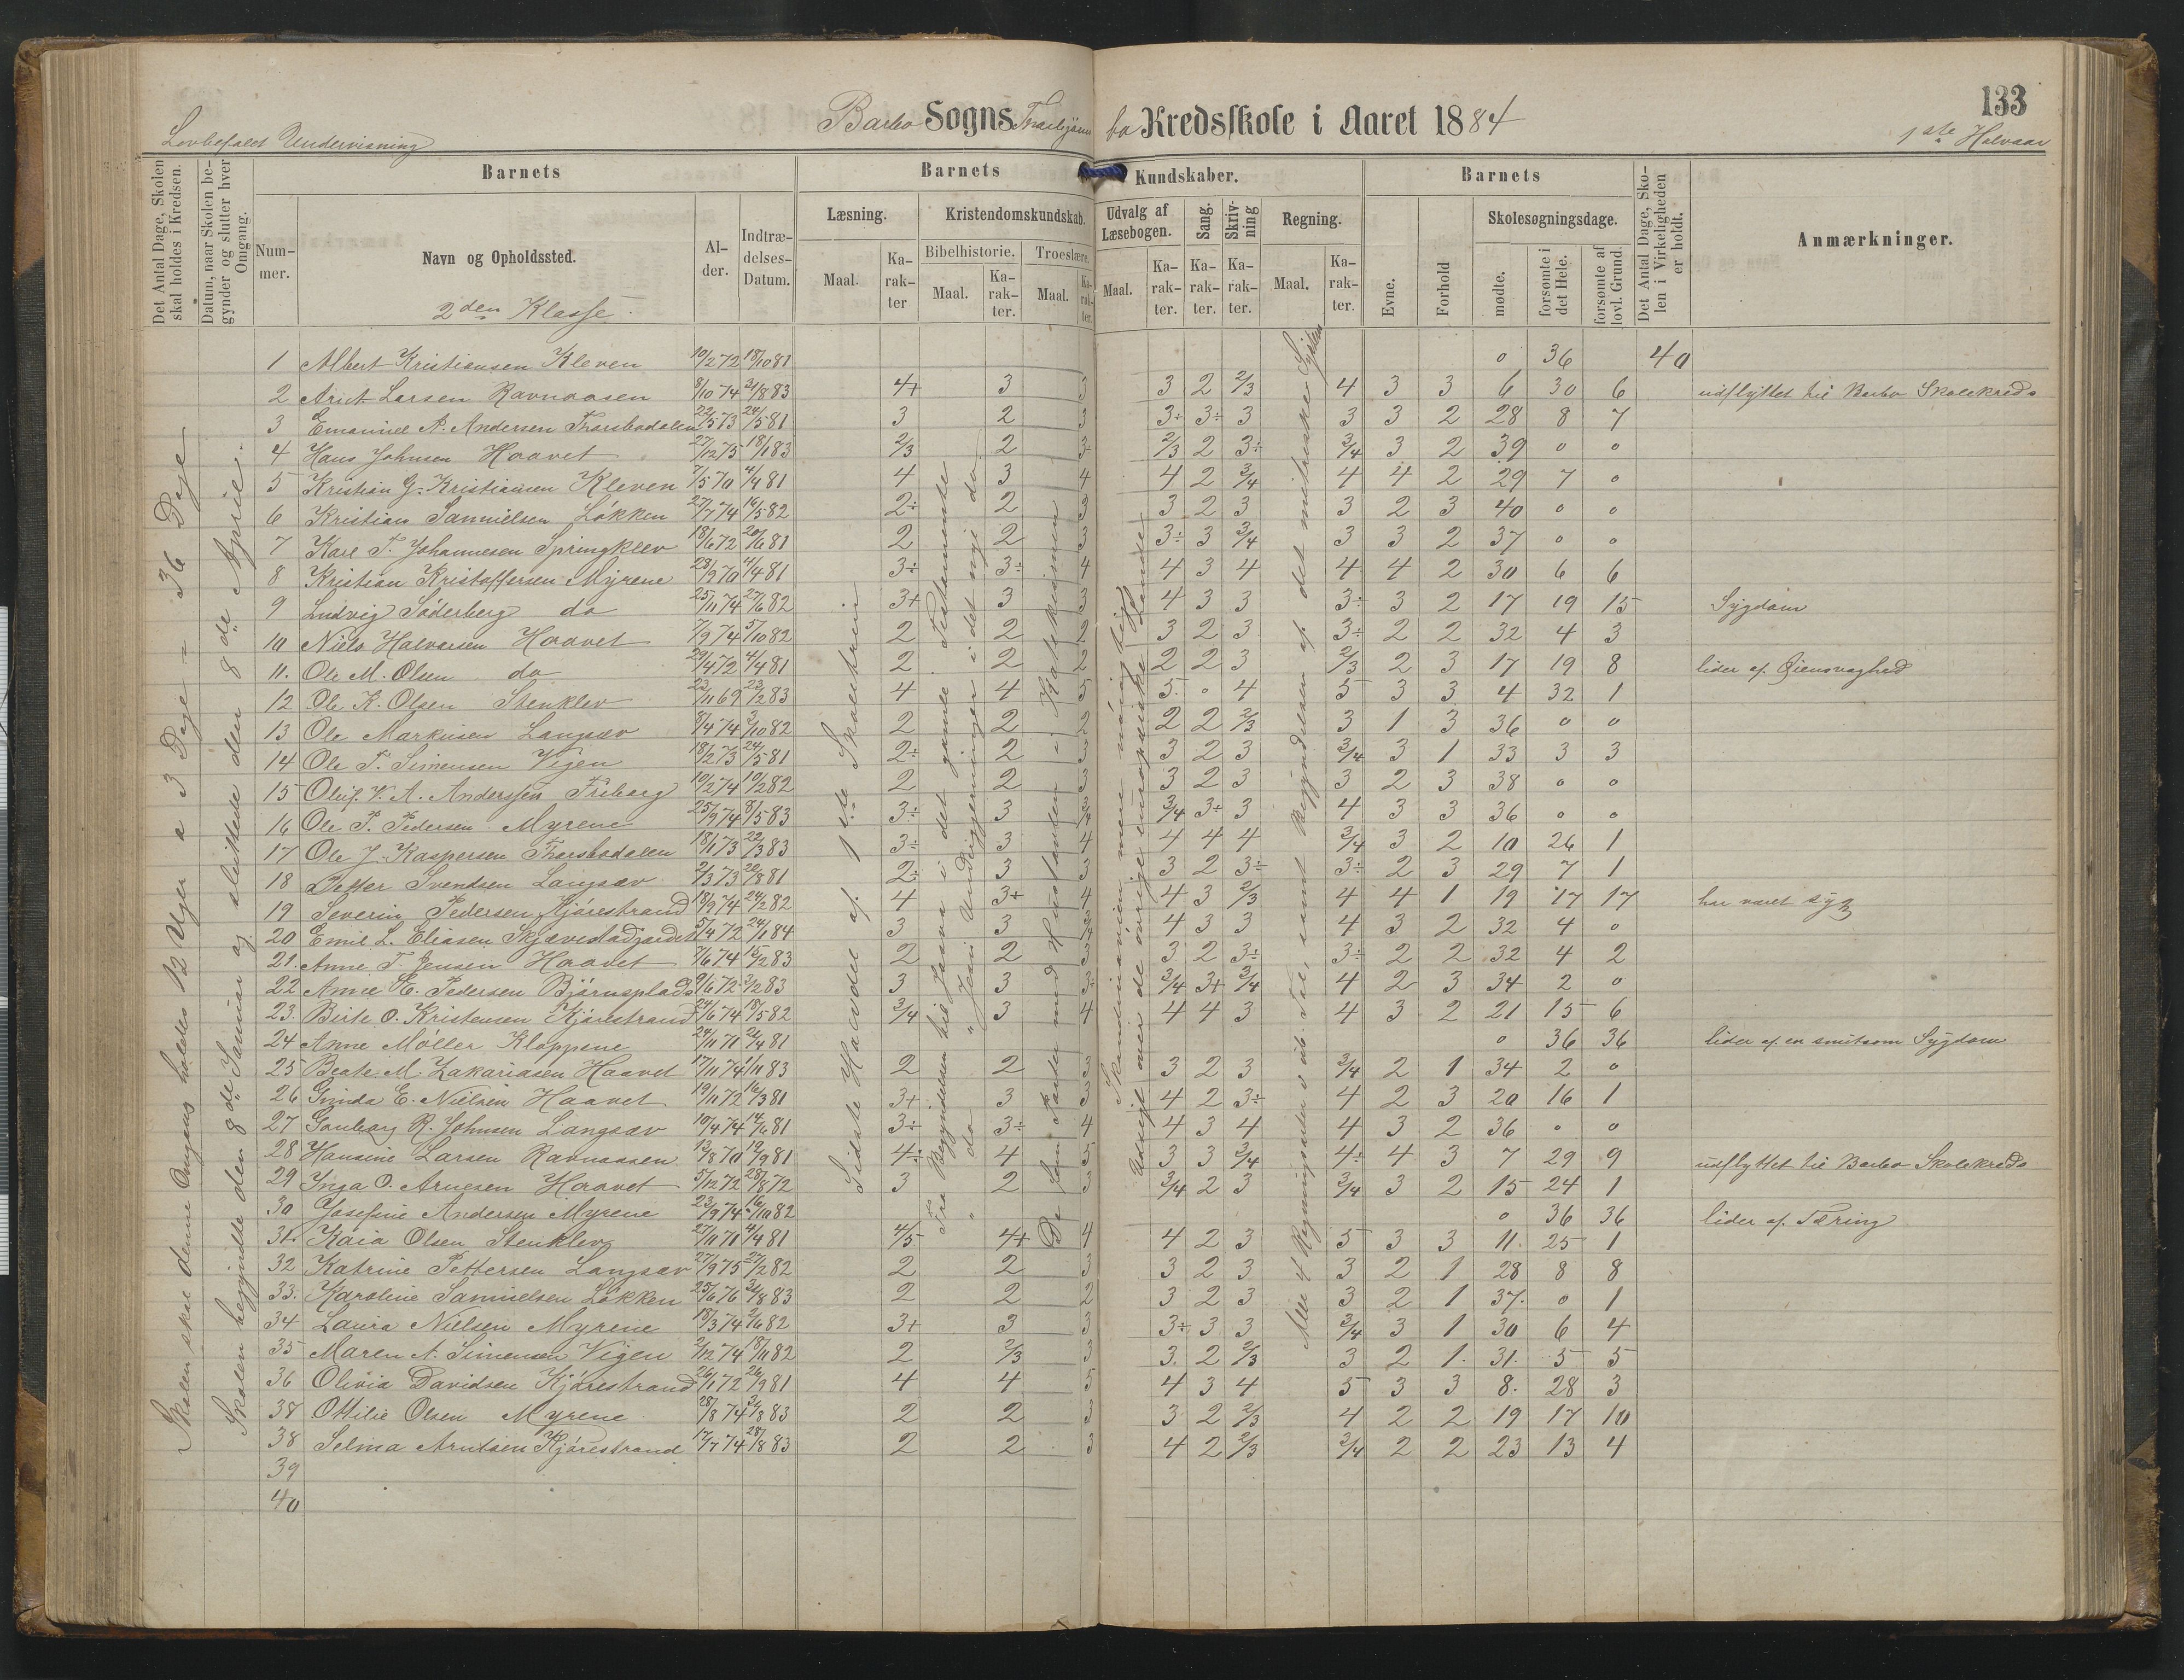 133
Barbo Sogns Kredsskole i Aaret 1884
Lovbefalet Undervisning
1ste Halvaar
Det Antal Dage, Skolen skal holdes i Kredsen.
Datum, naar Skolen begynder og slutter hver Omgang.
Barnets
Nummer.
Navn og Opholdssted.
Alder.
Indtrædelses-Datum.
Barnets Kundskaber.
Læsning.
Maal.
Karakter
Kristendomskundskab.
Bibelhistorie.
Maal.
Karakter.
Troeslære.
Maal.
Karakter.
Udvalg af Læsebogen.
Maal.
Karakter.
Sang.
Karakter.
Skrivning
Karakter.
Regning.
Maal.
Karakter.
Barnets
Evne.
Forhold
Skolesøgningsdage.
mødte.
forsømte i det Hele.
forsømte af lovl. Grund.
Det Antal Dage, Skolen i Virkeligheden er holdt.
Anmærkninger.
2den Klasse.
Skolen skal denne Omgang holdes 12 Uger a 3 Dage = 36 Dage
Skolen begyndte den 8de Januar og sluttede den 8de April.
Sidste Halvdel af 1ste Skoletrin
Fra Begyndelsen til Josva i det gamle Testamente
" do " Jesu Undergjerninger i det nye do
De fem Parter med Hustavlen i Katekismen
Skandinavien mere nøiagtigt
Udsigt over de øvrige europæiske Lande
Alle 4 Regningsarter i ub. Tal, samt Begyndelsen af det metriske System
1 Albert Kristiansen Kleven 10/2 72 18/10 81 0 36 40
2 Arnt Larsen Ravnaasen 8/10 74 31/8 83 4+ 3 3 3 2 2/3 4 3 3 6 30 6 udflyttet til Barbo Skolekreds
3 Emanuel A. Andersen Thorsbodalen 22/5 73 24/5 81 3 2 3 3÷ 3÷ 3 3 3 2 28 8 7
4 Hans Johnsen Haavet 27/12 75 18/1 83 2/3 2 3÷ 2/3 2 3÷ 3/4 3 2 39 0 0
5 Kristian G. Kristiansen Kleven 7/5 70 4/4 81 4 3 4 4 2 3/4 4 4 2 29 7 0
6 Kristian Samuelsen Løkken 27/7 74 16/5 82 2÷ 2 3 3 2 3 3 2 3 40 0 0
7 Karl T. Johannesen Springklev 18/6 72 20/6 81 2 2 3 3÷ 3 3/4 3 3 2 37 0 0
8 Kristian Kristoffersen Myrene 28/9 70 4/4 81 3÷ 3÷ 4 4 3 4 4 4 2 30 6 6
9 Ludvig Søderberg do 25/11 74 27/6 82 3+ 3 3 4 3 3 3÷ 3 2 17 19 15 Sygdom
10 Niels Halvorsen Haavet 7/9 74 5/10 82 2 2 2 3 2 3 3÷ 2 2 32 4 3
11. Ole M. Olsen do 29/4 72 4/4 81 2 2 2 2 2 3 2/3 2 3 17 19 8 lider af Øiensvaghed
12 Ole K. Olsen Stenklev 23/11 69 23/2 83 4 4 5 5. 0 4 5 3 3 4 32 1
13 Ole Markusen Langsæv 8/4 74 3/10 82 2 2 2 2 2 2/3 3 1 3 36 0 0
14 Ole T. Simensen Vigen 18/2 73 24/5 81 2÷ 2 3 3 2 3 3/4 3 1 33 3 3
15 Oluf. V. A. Anderssen Friberg 10/2 74 10/2 82 2 2 3 3 2 3 3 2 3 38 0 0
16 Ole P. Pedersen Myrene 25/9 74 8/5 83 3÷ 3 3/4 3/4 3÷ 3 4 3 3 36 0 0
17 Ole J. Kaspersen Thorsbodalen 18/1 73 22/3 83 3÷ 3 4 4 4 4 3/4 3 2 10 26 1
18 Petter Svendsen Langsæv 2/3 73 22/8 81 2÷ 3 3 3 2 3÷ 3÷ 2 3 29 7 1
19 Severin Pedersen Kjørestrand 18/9 74 24/2 82 4 3+ 4 4 3 2/3 4 4 1 19 17 17 har været syg
20 Emil L. Eliasen Skjævestadgaardet 5/4 72 24/1 84 3 3 3/4 4 3 3 4 3 2 32 4 0
21. Anne T. Jensen Haavet 7/6 74 15/2 83 2 2 3 3 2 3÷ 3÷ 2 2 32 4 2
22 Anne E. Pedersen Bjørnsplads 9/6 72 2/2 83 3 3 3÷ 3/4 3+ 3/4 4 2 3 34 2 0
23. Berte O. Kristensen Kjørestrand 24/6 74 18/5 82 3/4 3 4 4 4 3 4 3 2 21 15 6
24 Anne Møller Kloppene 24/11 71 26/4 81 0 36 36 lider af en smitsom Sygdom
25 Beate M. Zakariasen Haavet 17/11 74 1/11 83 2 2 3 3 2 3 3/4 2 1 34 2 0
26 Gunda E. Nielsen Haavet 19/11 72 16/3 81 3+ 3 3 4 2 3÷ 4 2 3 20 16 1
27 Gunborg R. Johnsen Langsæv 10/4 74 14/6 81 3÷ 3÷ 4 4 3 4 4 3 2 36 0 0
28 Hansine Larsen Ravnaasen 13/8 70 19/9 81 4÷ 4 5 3 3 3/4 4÷ 4 3 7 29 9 udflyttet til Barbo Skolekreds
29 Inga O. Arnesen Haavet 5/12 72 28/8 72 3 2 3 3/4 2 3 3/4 3 2 15 24 1
30 Josefine Andersen Myrene 23/9 74 16/10 82 0 36 36 lider af Tæring
31. Kaia Olsen Stenklev 27/11 71 4/4 81 4/5 4+ 4 4 2 3 5 3 3 11. 25 1
32 Katrine Pettersen Langsæv 27/9 75 27/2 82 2 2 3 3 2 3 3 2 1 28 8 8
33. Karoline Samuelsen Løkken 25/6 76 31/8 83 2 2 2 3 2 3 3 2 1 37. 0 1
34 Laura Nielsen Myrene 18/3 74 2/6 82 3+ 3 3 3÷ 3 3 3/4 3 1 30 6 4
35 Maren A. Simensen Vigen 2/12 74 18/11 82 2 2/3 3 3. 2 2/3 3 2 1. 31. 5 5
36 Olivia Davidsen Kjørestrand 26/1 72 26/9 81 4 4 5 4 3 4 5 3 3 8. 28 3
38 Ottilie Olsen Myrene 28/8 74 31/8 83 2 2 3 3 2 2/3 4 2 2 19 17 10
38 Selma Arntsen Kjørestrand 17/7 74 28/8 83 2 2 3 4 2 2/3 3/4 2 2 23 13 4
39
40